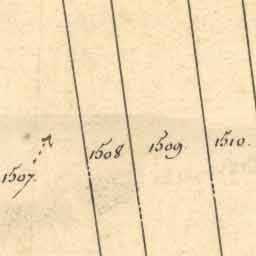 1507.
1508
1509
1510.